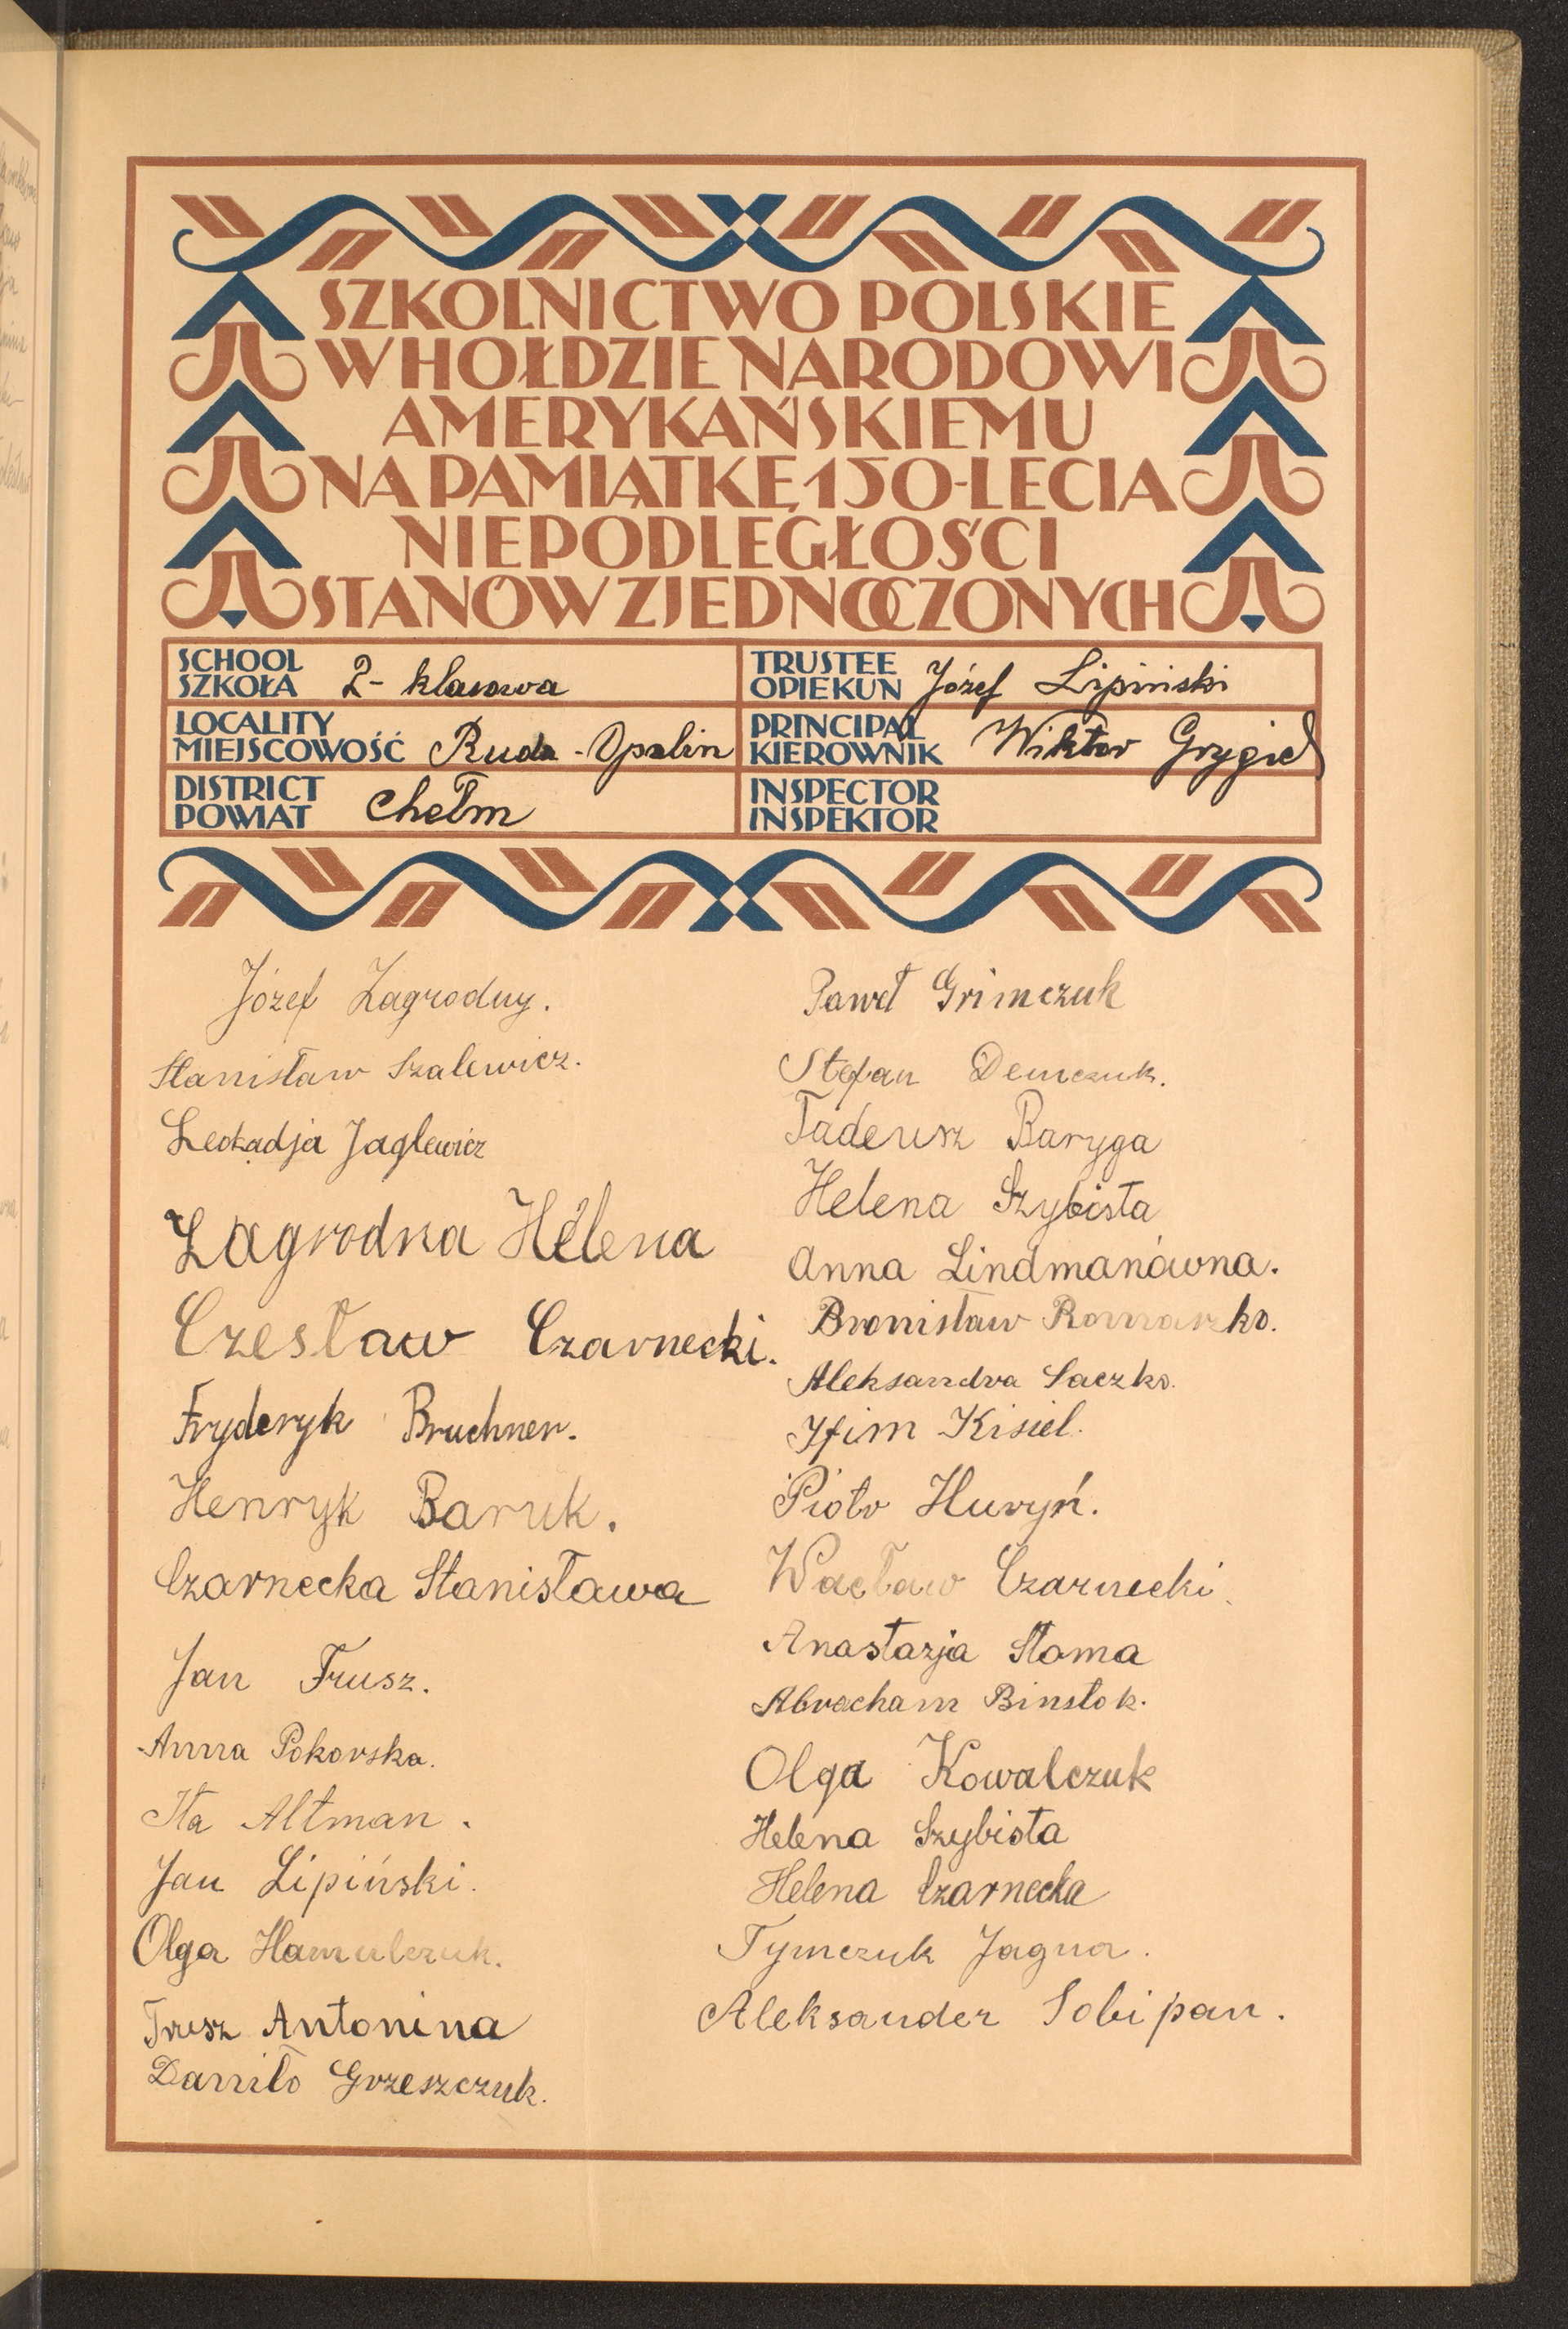 SZKOLNICTWO POLSKIE
W HOŁDZIE NARODOWI
AMERYKAŃSKIEMU
NA PAMIĄTKĘ 150-LECIA
NIEPODLEGŁOŚCI
STANÓW ZJEDNOCZONYCH
SCHOOL
SZKOŁA 2- klasowa
TRUSTEE
OPIEKUN Józef Lipiński
LOCALITY
MIEJSCOWOŚĆ Ruda - Opalin
PRINCIPAL
KIEROWNIK Wiktor Grygiel
DISTRICT
POWIAT Chełm
INSPECTOR
INSPEKTOR
Józef Zagrodny.
Stanisław Szalewicz.
Leokadja Jaglewicz
Zagrodna Helena
Czesław Czarnecki.
Fryderyk Bruchner.
Henryk Baruk.
Czarnecka Stanisława
Jan Trusz.
Anna Pokorska.
Ita Altman.
Jan Lipiński.
Olga Hamulczuk.
Trusz Antonina
Daniło Grzeszczuk.
Paweł Grimczuk
Stefan Demczuk.
Tadeusz Baryga
Helena Szybista
Anna Lindmanówna.
Bronisław Romaszko.
Aleksandra Saczko.
Jfim Kisiel.
Piotr Huryń.
Wacław Czarnecki.
Anastazja Stoma
Abracham Binstok.
Olga Kowalczuk
Helena Szybista
Helena Czarnecka
Tymczuk Jagna.
Aleksander Sobipan.